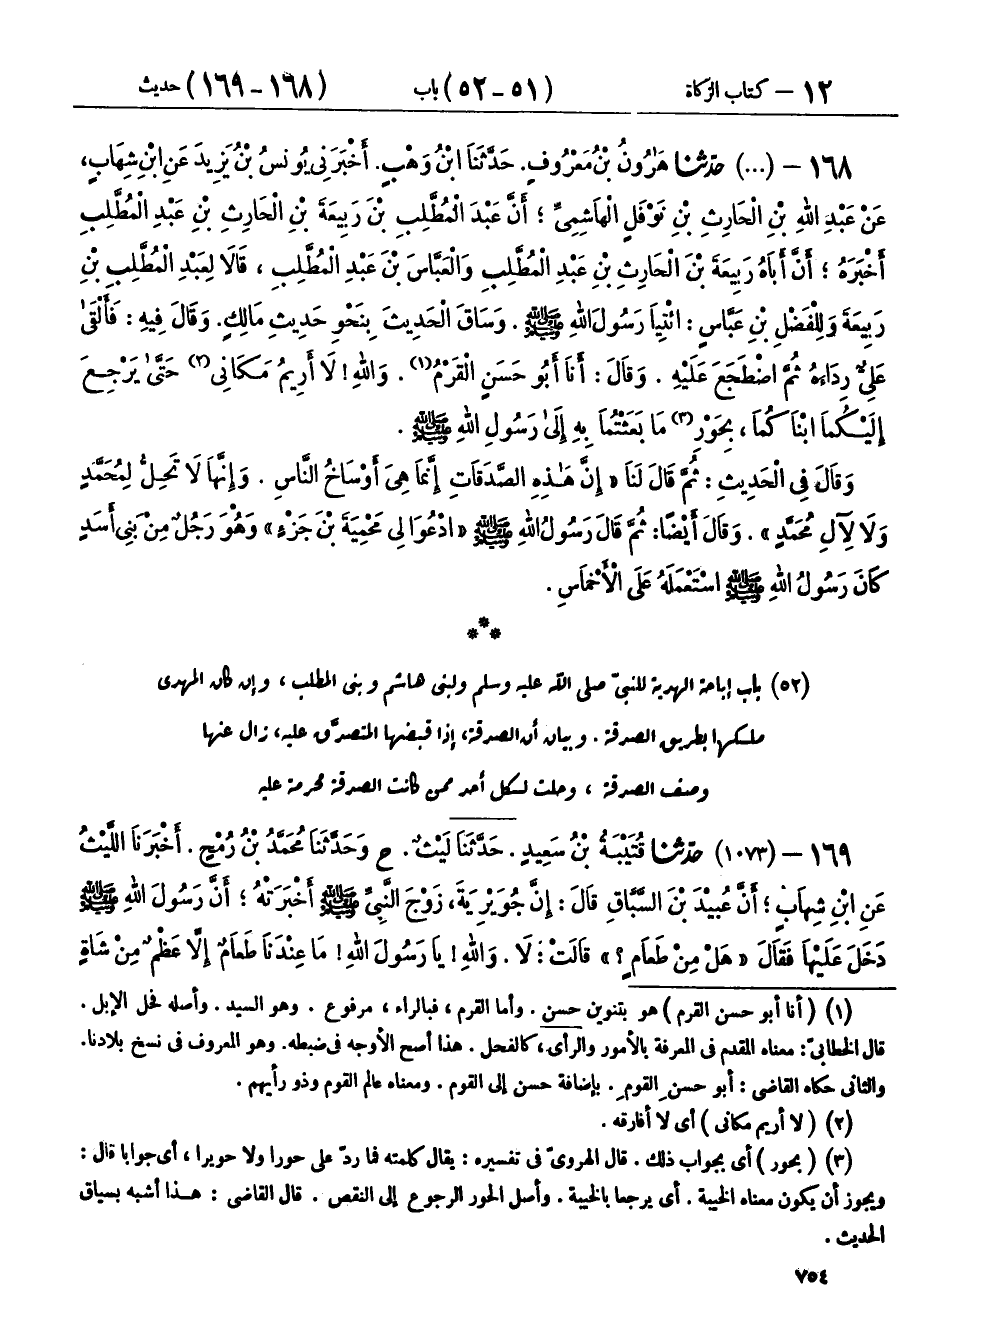 ١٢ – كتاب الزكاة (٥١-٥٢) باب (١٦٨-١٦٩) حديث
١٦٨ – (...) حَدَّثَنَا هَرُونُ بْنُ مَعْرُوفٍ. حَدَّثَنَا ابْنُ وَهْبٍ. أَخْبَرَنِي يُونُسُ بْنُ يَزِيدَ عَنِ ابْنِ شِهَابٍ،
عَنْ عَبْدِ اللهِ بْنِ الْحَارِثِ بْنِ نَوْفَلٍ الْهَاشِمِيِّ ؛ أَنَّ عَبْدَ الْمُطَّلِبِ بْنَ رَبِيعَةَ بْنِ الْحَارِثِ بْنِ عَبْدِ الْمُطَّلِبِ
أَخْبَرَهُ ؛ أَنَّ أَبَاهُ رَبِيعَةَ بْنَ الْحَارِثِ بْنِ عَبْدِ الْمُطَّلِبِ وَالْعَبَّاسَ بْنَ عَبْدِ الْمُطَّلِبِ ، قَالَا لِعَبْدِ الْمُطَّلِبِ بْنِ
رَبِيعَةَ وَلِلْفَضْلِ بْنِ عَبَّاسٍ : ائْتِيَا رَسُولَ اللهِ ﷺ . وَسَاقَ الْحَدِيثَ بِنَحْوِ حَدِيثِ مَالِكٍ. وَقَالَ فِيهِ : فَأَلْقَىٰ
عَلِيٌّ رِدَاءَهُ ثُمَّ اضْطَجَعَ عَلَيْهِ . وَقَالَ : أَنَا أَبُو حَسَنٍ الْقَرْمُ(١) . وَاللهِ! لَا أَرِيمُ مَكَانِي(٢) حَتَّىٰ يَرْجِعَ
إِلَيْكُمَا ابْنَاكُمَا ، بِحَوْرِ(٣) مَا بَعَثْتُمَا بِهِ إِلَىٰ رَسُولِ اللهِ ﷺ .
وَقَالَ فِي الْحَدِيثِ : ثُمَّ قَالَ لَنَا « إِنَّ هَـٰذِهِ الصَّدَقَاتِ إِنَّمَا هِيَ أَوْسَاخُ النَّاسِ . وَإِنَّهَا لَا تَحِلُّ لِمُحَمَّدٍ
وَلَا لِآلِ مُحَمَّدٍ » . وَقَالَ أَيْضًا: ثُمَّ قَالَ رَسُولُ اللهِ ﷺ « ادْعُوَا لِي مَحْمِيَةَ بْنَ جَزْءٍ » وَهُوَ رَجُلٌ مِنْ بَنِي أَسَدٍ
كَانَ رَسُولُ اللهِ ﷺ اسْتَعْمَلَهُ عَلَى الْأَخْمَاسِ .
***
(٥٢) باب إباحة الهدية للنبيّ صلى الله عليه وسلم ولبنى هاشم وبنى المطلب ، وإن كان المهدى
ملكها بطريق الصدقة . وبيان أن الصدقة، إذا قبضها المتصدَّق عليه، زال عنها
وصف الصدقة ، وحلت لكل أحد ممن كانت الصدقة محرمة عليه
١٦٩ – (١٠٧٣) حَدَّثَنَا قُتَيْبَةُ بْنُ سَعِيدٍ . حَدَّثَنَا لَيْثٌ . ح وَحَدَّثَنَا مُحَمَّدُ بْنُ رُمْحٍ . أَخْبَرَنَا اللَّيْثُ
عَنِ ابْنِ شِهَابٍ ؛ أَنَّ عُبَيْدَ بْنَ السَّبَّاقِ قَالَ : إِنَّ جُوَيْرِيَةَ، زَوْجَ النَّبِيِّ ﷺ أَخْبَرَتْهُ ؛ أَنَّ رَسُولَ اللهِ ﷺ
دَخَلَ عَلَيْهَا فَقَالَ « هَلْ مِنْ طَعَامٍ ؟ » قَالَتْ : لَا . وَاللهِ! يَا رَسُولَ اللهِ! مَا عِنْدَنَا طَعَامٌ إِلَّا عَظْمٌ مِنْ شَاةٍ
(١) ( أنا أبو حسن القرم ) هو بتنوين حسن . وأما القرم ، فبالراء ، مرفوع . وهو السيد . وأصله فحل الإبل .
قال الخطابىّ : معناه المقدم فى المعرفة بالأمور والرأى، كالفحل . هذا أصح الأوجه فى ضبطه. وهو المعروف فى نسخ بلادنا.
والثانى حكاه القاضى : أبو حسنِ القومِ . بإضافة حسن إلى القوم . ومعناه عالم القوم وذو رأيهم .
(٢) ( لا أريم مكانى ) أى لا أفارقه .
(٣) ( بحور ) أى بجواب ذلك . قال الهروىّ فى تفسيره : يقال كلمته فما ردّ على حورا ولا حويرا ، أى جوابا قال :
ويجوز أن يكون معناه الخيبة . أى يرجعا بالخيبة . وأصل الحور الرجوع إلى النقص . قال القاضى : هـذا أشبه بسياق
الحديث .
٧٥٤